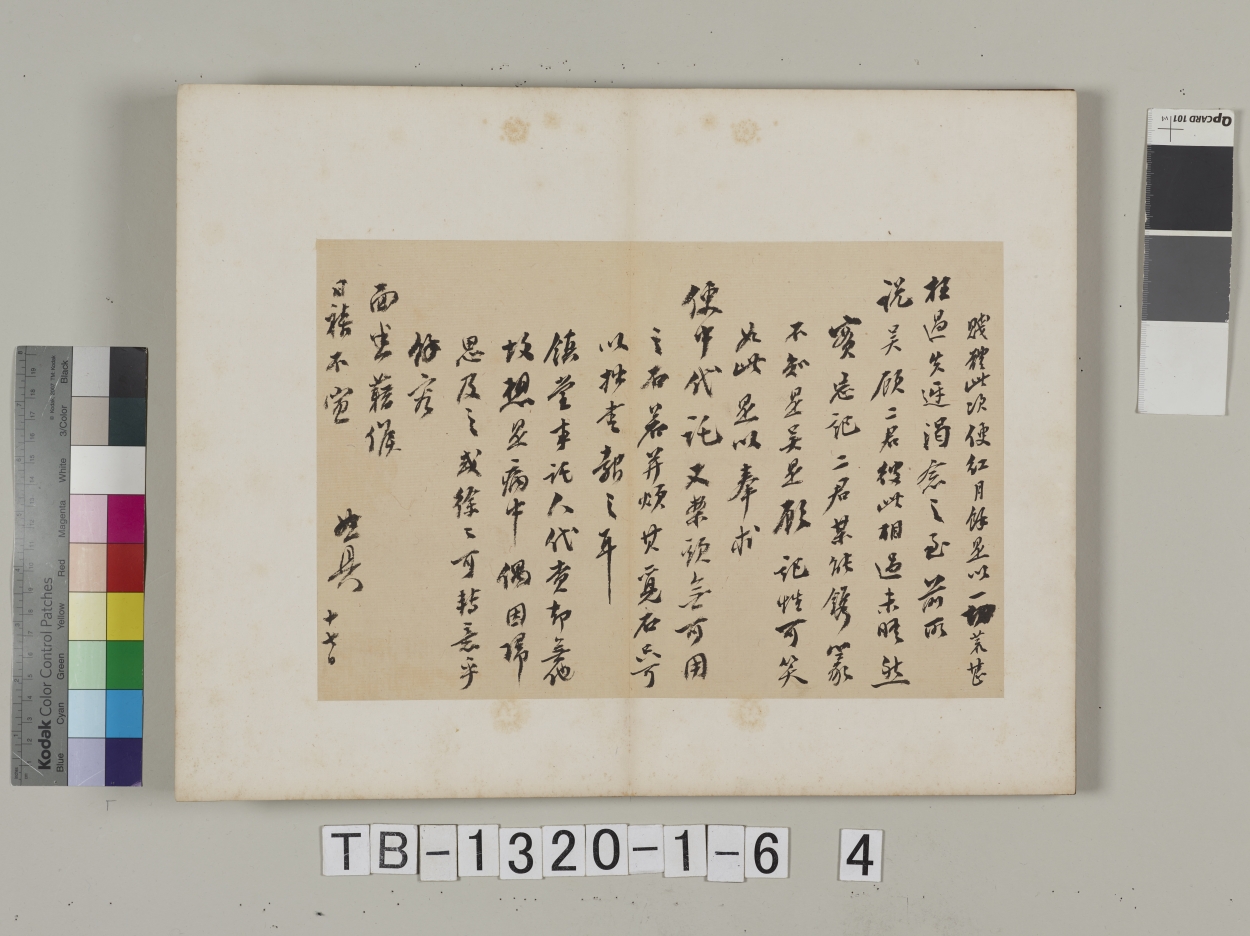 賤體此次便紅月餘是以一切荒甚
枉過失迓渴念之至前所
說吳顧二君彼此相過未晤然
實忘記二君某能鐫篆
不知是吳是顧記性可笑
如此是以奉求
便中代託又案頭無可用
之石若并煩其覓石只可
以拙書報之耳
鎮堂事託人代賣却無他
故想是病中偶因歸
思及之或徐之可轉意乎
餘容
面坐藉候
日禧不宣 具
十七日
TB-1320-1-6 4
QPCARD 101
Kodak Color Control Patches
Blue Cyan Green Yellow Red Magenta White 3/Color Black